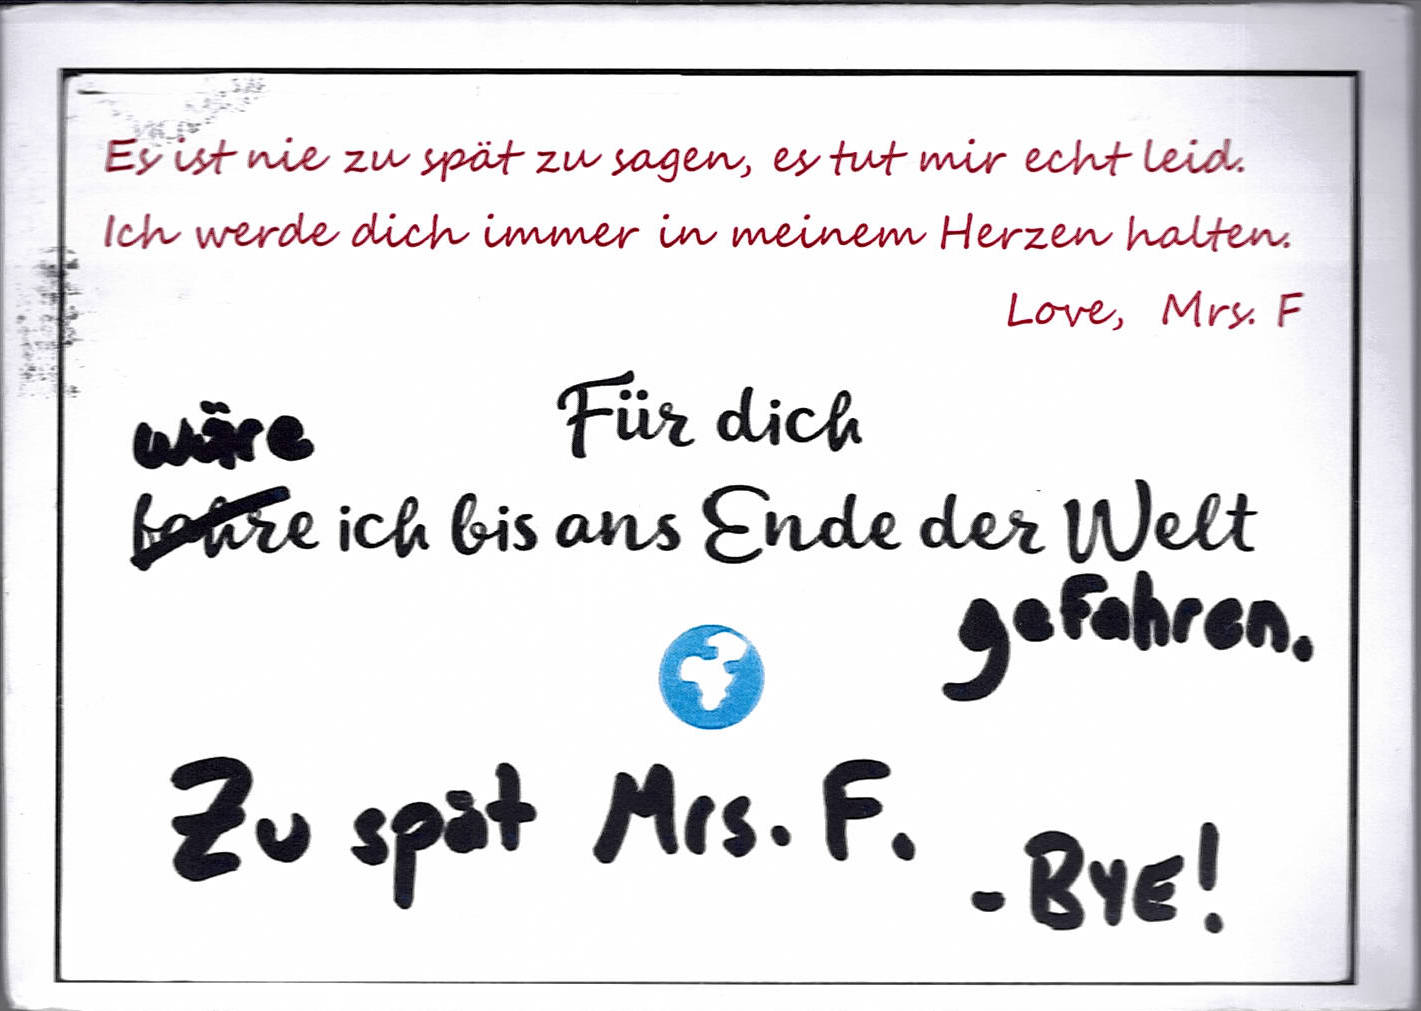 Es ist nie zu spät zu sagen, es tut mir echt leid.
Ich werde dich immer in meinem Herzen halten.
Love, Mrs. F
Für dich
wäre
fahre ich bis ans Ende der Welt
gefahren.
Zu spät Mrs. F.
- BYE!